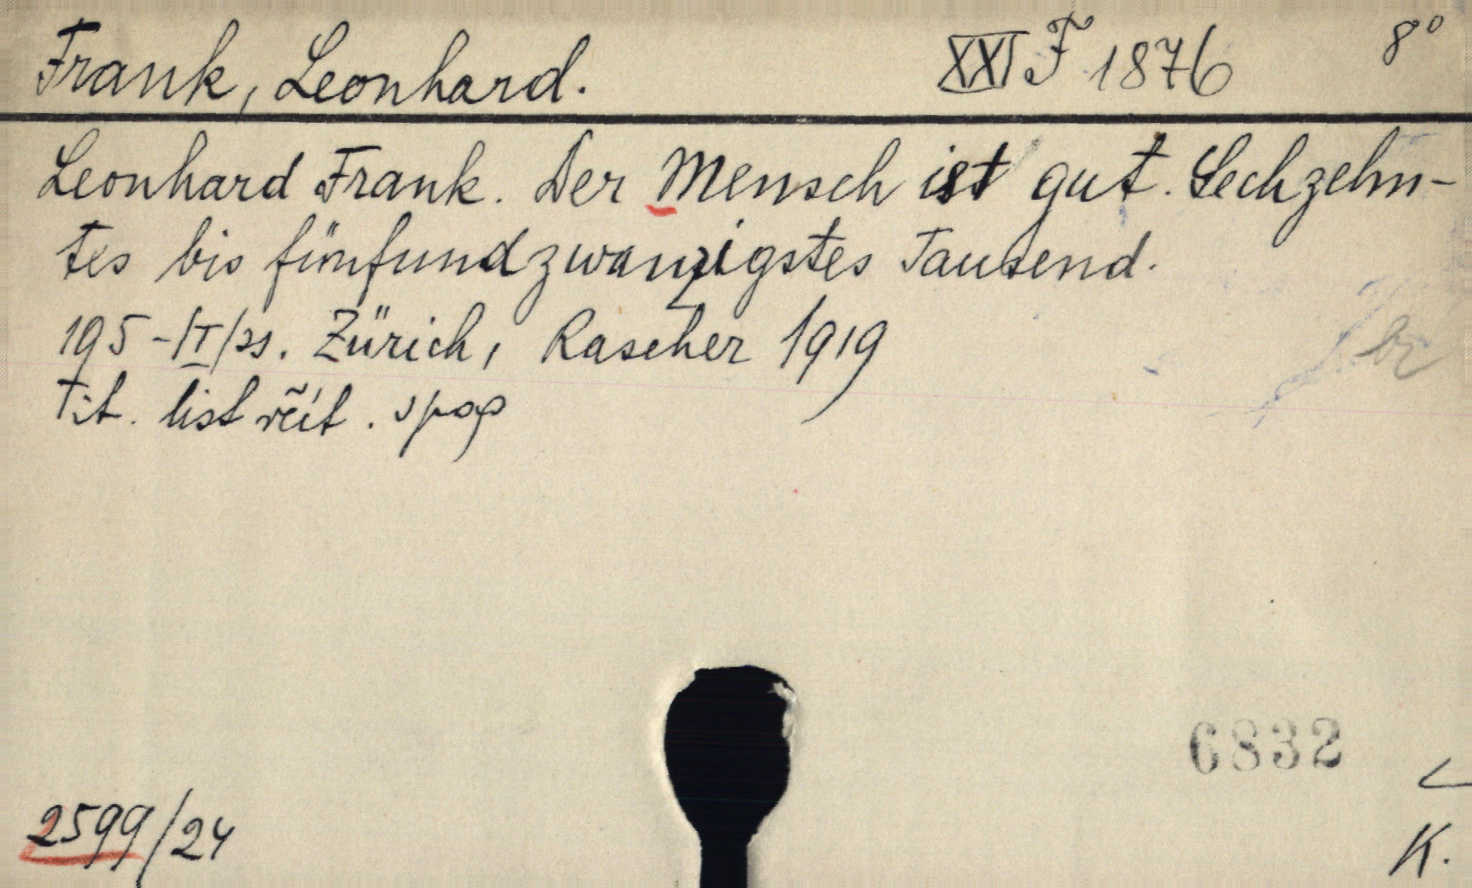 Frank, Leonhard. XXI F 1876 8°
Leonhard Frank. Der Mensch ist gut. Sechzehn-
tes bis fünfundzwanzigstes Tausend.
195-/I/ss. Zürich, Rascher 1919
Tit. list
br
6832
2599/24
K.